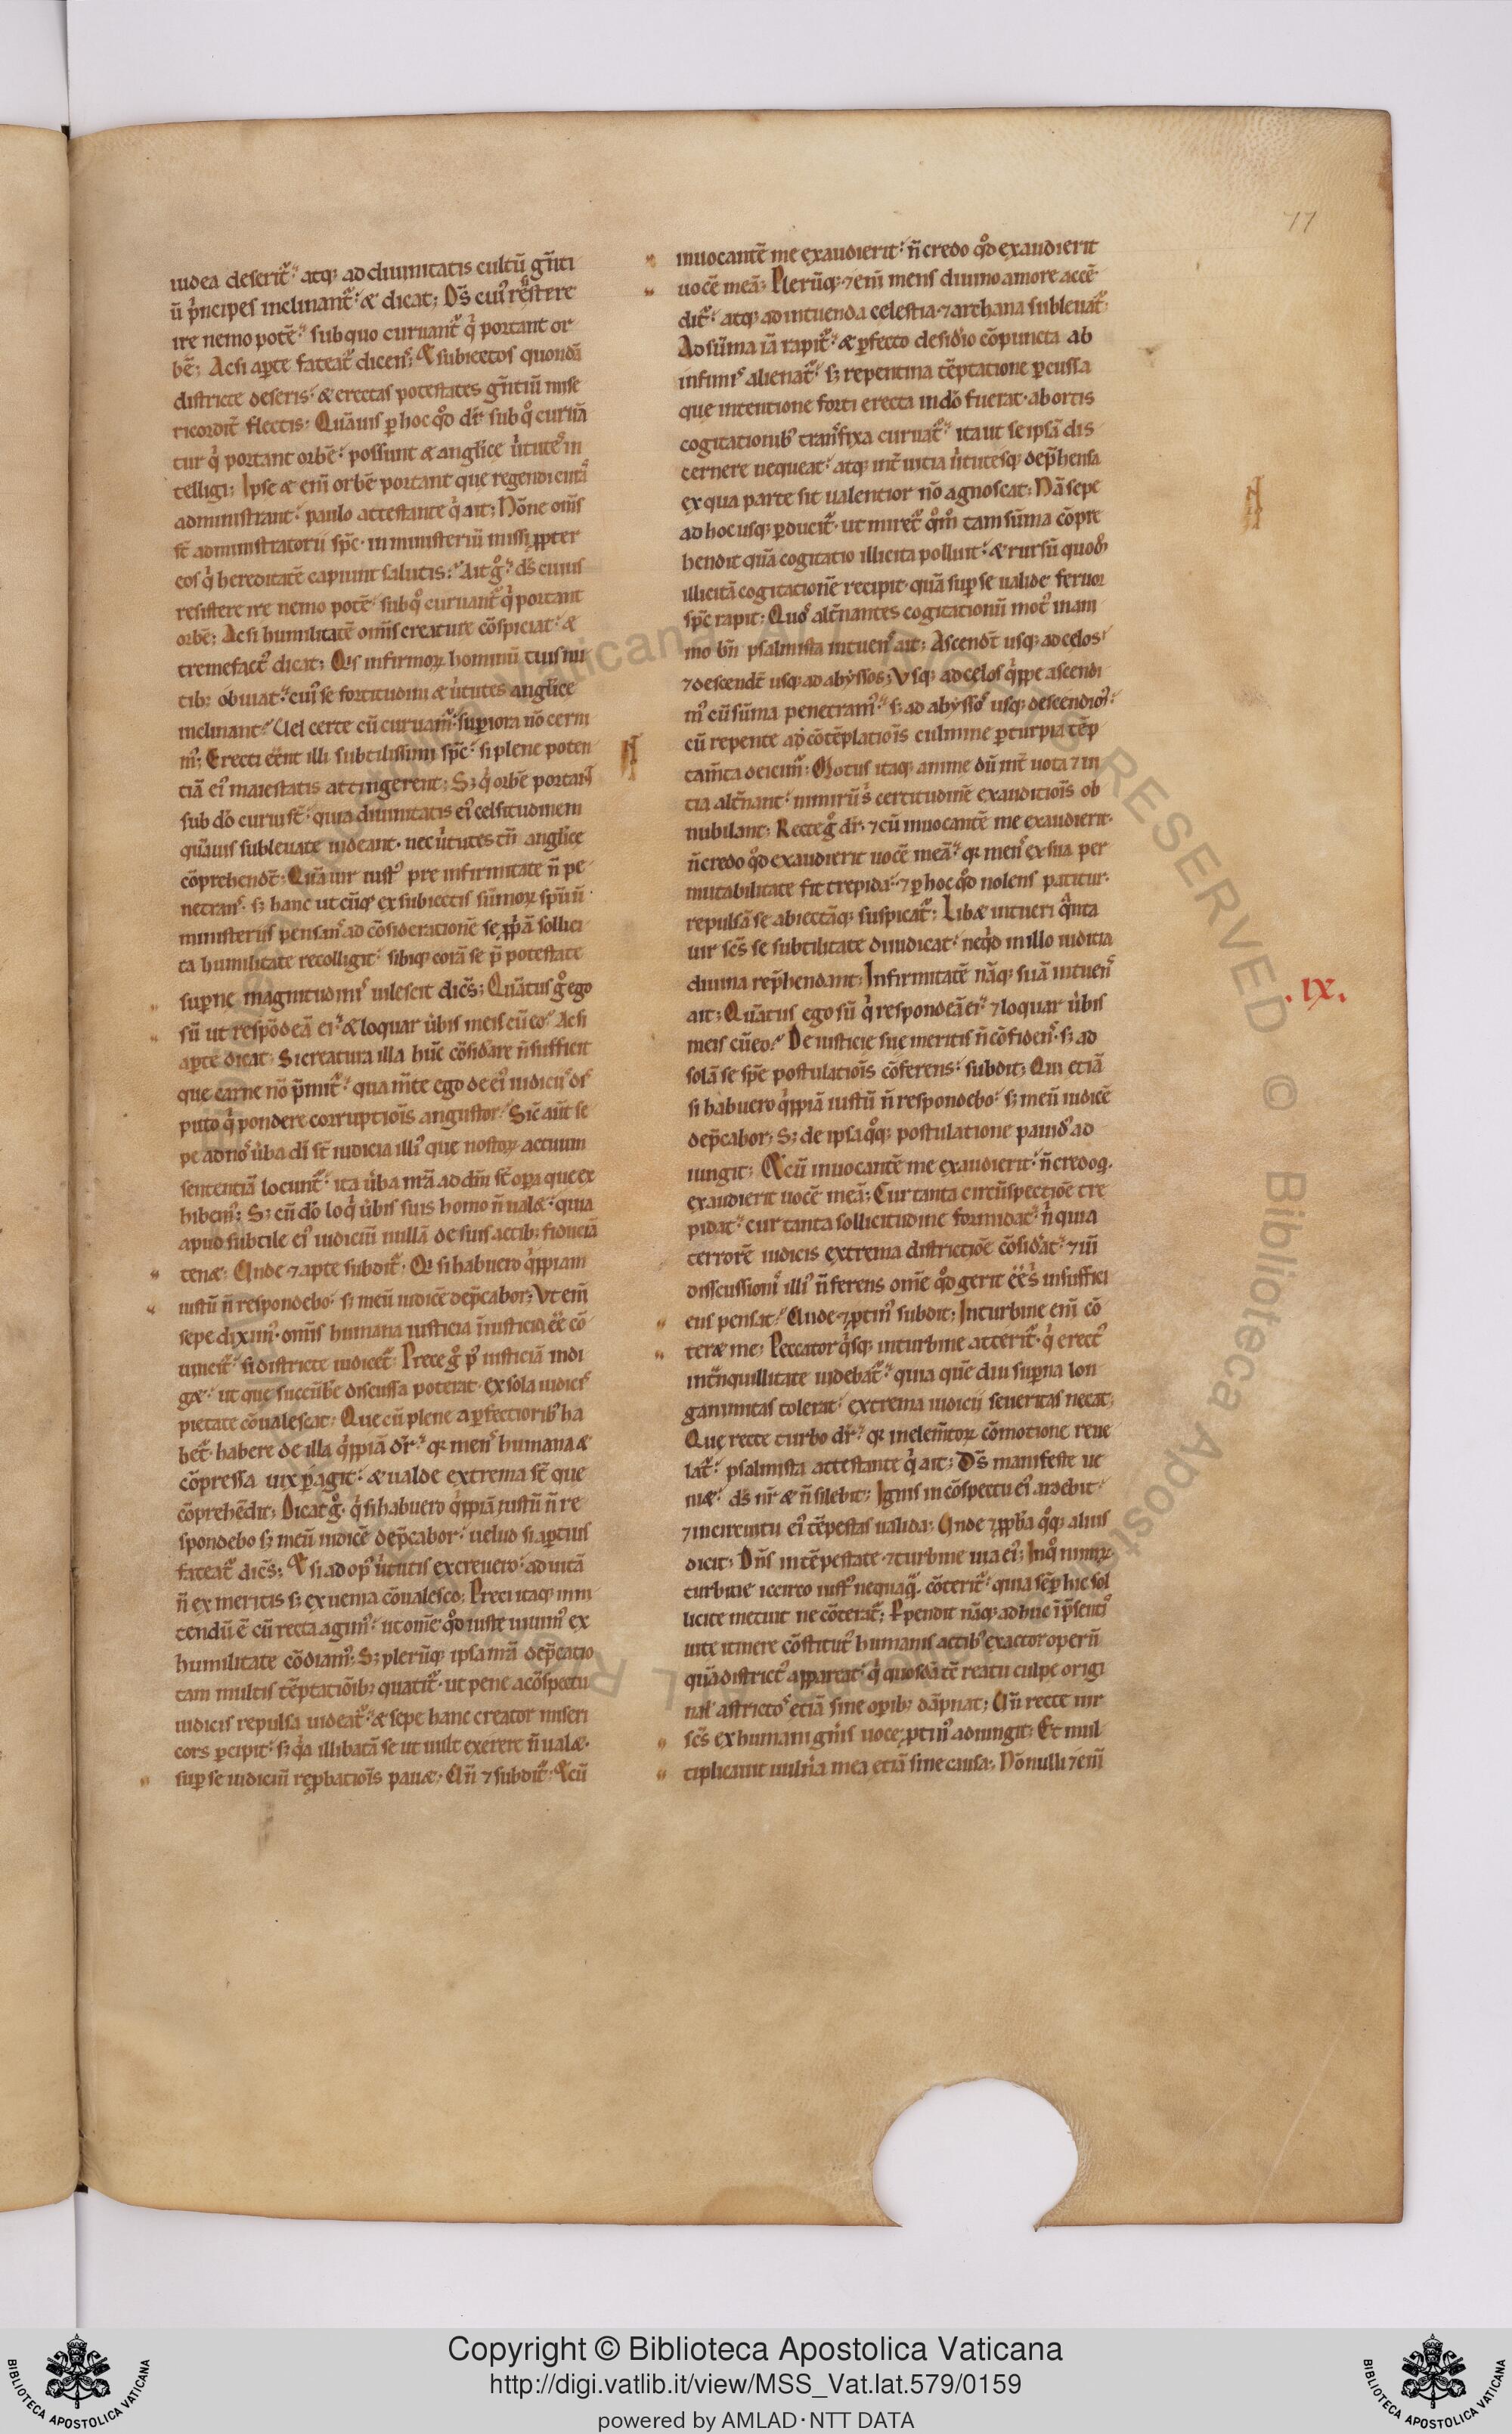 77
iudea deserit᷑ atq; ad diuinitatis cultū gn̄ti
ū pͥncipes inclinant᷑ & dicat; Ds̄ cuiꝰ resistere
ire nemo potē sub quo curuant᷑ qͥ portant or
bē; Ac si aꝑte fateat᷑ dicens; Et subiectos quondā
districte deseris & erectas potestates gn̄tiū mise
ricordit̄ flectis; Quāuis ꝑ hoc qd̊ dr̄ sub qͦ curuā
tur qͥ portant orbē possunt & anglice uͥtutes in
telligi; Ipse & enī orbē portant que regendi curā
administrant paulo attestante qͥ ait; Nōne om̄s
st̄ administratorii spc̄ in ministeriū missi ꝓpter
eos qͥ hereditatē capiunt salutis; Ait gͦ ds̄ cuius
resistere ire nemo potē sub qͦ curuant᷑ qͥ portant
orbē; Ac si humilitatē om̄is creature cōspiciat &
tremefactꝰ dicat; Qis infirmoꝝ hominū tuis nu
tib; obuiat cuiꝰ se fortitudini & uͥtutes anglice
inclinant; Uel certe cū curuam᷑ superiora nō cerni
mꝰ; Erecti eēnt illi subtilissimi spc̄ si plene poten
tiā eiꝰ maiestatis attingerent; S; qͥ orbē portant
sub dō curui st̄ quia diuinitatis eiꝰ celsitudinem
quāuis subleuate uideant nec uͥtutes tn̄ anglice
cōprehendt̄; Quā uir iustꝰ pre infirmitate n̄ pe
netrans s; hanc utcūq; ex subiectis sūmoꝝ spūū
ministeriis pensans ad cōsiderationē se ꝓpͥā sollici
ta humilitate recolligit sibiq; corā se p̄ potestate
suꝑne magnitudinis uilescit dicēs; Quātus gͦ ego
sū ut respōdeā ei & loquar uͥbis meis cū eo; Ac si
aꝑte dicat; Si creatura illa hūc cōsiďare n̄ sufficit
que carne nō p̄mit᷑ qua m̄te ego de eiꝰ iudiciis dis
puto qͥ pondere corruptiōis angustor; Sic aūt se
pe ad nos uͥba dī st̄ iudicia illiꝰ que nostroꝝ actuum
sententiā locunt᷑ ita uͥba nr̄a ad dīn st̄ oꝑa que ex
hibemꝰ; S; cū dō loqͥ uͥbis suis homo n̄ ualet quia
apud subtile eiꝰ iudiciū nullā de suis actib; fiduciā
tenet; Unde & apte subdit᷑ Qi si habuero qͥppiam
iustū n̄ respondebo s; meū iudicē dep̄cabor; Ut enī
sepe diximꝰ omīs humana iusticia īiusticia eē cō
uincit᷑ si districte iudicet᷑; Prece gͦ pꝰ iusticiā indi
get ut que succūbe discussa poterat ex sola iudicis
pietate cōualescat; Que cū plene a ꝑfectiorib; ha
bet᷑ habere de illa qͥppiā dr̄ qr mens humana &
cōpressa uix ꝑagit & ualde extrema st̄ que
cōprehēdit; Dicat gͦ qͥ si habuero qͥppiā iustū n̄ re
spondebo s; meū iudicē dep̄cabor uelud si aꝑtius
fateat᷑ dicēs; Et si ad opꝰ uͥtutis excreuero ad uitā
n̄ ex meritis s; ex uenia cōualesco; Preci itaq; inni
tendū ē cū recta agimꝰ ut omē qd̊ iuste uiuimꝰ ex
humilitate cōdiamꝰ; S; plerūq; ipsa nr̄ā dep̄catio
tam multis tēptatiōib; quatit᷑ ut pene a cōspectu
iudicis repulsa uideat᷑ & sepe hanc creator miseri
cors ꝑcipit s; qͥa illibatā se ut uult exerere n̄ ualet
suꝑ se iudiciū reꝓbatiōis pauet; Un̄ & subdit᷑ Et cū
inuocantē me exaudierit n̄ credo qd̊ exaudierit
uocē meā; Plerūq; & enī mens diuino amore accē
dit᷑ atq; ad intuenda celestia & archana subleuat᷑
Ad sūma iā rapit᷑ & ꝑfecto desiďio cōpuncta ab
infimis alienat᷑ s; repentina tēptatione ꝑcussa
que intentione forti erecta in dō fuerat abortis
cogitationibꝰ transfixa curuat᷑ ita ut se ipsā dis
cernere nequeat atq; int̄ uitia uͥtutesq; dep̄hensa
ex qua parte sit ualentior nō agnoscat; Nā sepe
ad hoc usq; ꝑducit᷑ ut miret᷑ qm̊ tam sūma cōpre
hendit quā cogitatio illicita polluit & rursū quom̊
illicitā cogitationē recipit quā suꝑ se ualide feruor
spc̄ rapit; Quos alt̄nantes cogitationū motꝰ in ani
mo bn̄ psalmista intuens ait; Ascendt̄ usq; ad celos
& descendt̄ usq; ad abyssos; Usq; ad celos qͥppe ascendi
mꝰ cū sūma penetramꝰ s; ad abyssos usq; descendimꝰ
cū repente ad cōtēplatiōis culmine ꝑ turpia tēp
tam̄ta deicim᷑; Motus itaq; anime dū int̄ uota & ui
tia alt̄nant nimirū s certitudinē exauditiōis ob
nubilant; Recte gͦ dr̄ & cū inuocantē me exaudierit
n̄ credo qd̊ exaudierit uocē meā qr mens ex sua per
mutabilitate fit trepida & ꝑ hoc qd̊ nolens patitur
repulsā se abiectāq; suspicat᷑; Libet intueri qͣnta
uir scs̄ se subtilitate diiudicat neqͥd in illo iuditia
diuina rep̄hendant; Infirmitatē nāq; suā intuens
ait; Quātus ego sū qͥ respondeā ei & loquar uͥbis
meis cū eo; De iusticie sue meritis n̄ cōfidens s; ad
solā se spē postulatiōis cōferens subdit; Qui etiā
si habuero qͥppiā iustū n̄ respondebo s; meū iudicē
dep̄cabor; S; de ipsa qͦq; postulatione pauidꝰ ad
iungit; Et cū inuocantē me exaudierit n̄ credo q.
exaudierit uocē meā; Cur tanta circūspectiōe tre
pidat cur tanta sollicitudine formidat nͥ quia
terrorē iudicis extrema districtiōe cōsiďat & uī
disscussionis illiꝰ n̄ ferens omē qd̊ gerit eē s insuffici
ens pensat; Unde & ꝓtinꝰ subdit; In turbine enī cō
teret me; Peccator qͥsq; in turbine atterit᷑ qͥ erectꝰ
in tͣnquillitate uidebat᷑ quia quē diu suꝑna lon
ganimitas tolerat extrema iudicii seueritas necat;
Que recte turbo dr̄ qr in elem̄toꝝ cōmotione reue
lat᷑ psalmista attestante qͥ ait; Ds̄ manifeste ue
niet ds̄ nr̄ & n̄ silebit; Ignis in cōspectu eiꝰ ardebit
& in circuitu eiꝰ tēpestas ualida; Unde & ꝓpha qͦq; alius
dicit; Dn̄s in tēpestate & turbine uia eiꝰ; In qͦ nimiꝝ
turbine iccirco iustꝰ nequaqͣ cōterit᷑ quia sēꝑ hic sol
licite metuit ne cōterat᷑; Perpendit nāq; adhuc ī p̄sentis
uite itinere cōstitutꝰ humanis actibꝰ exactor operū
quā districtꝰ appareat qͥ quosdā tē reatu culpe origi
nal astrictos etiā sine oꝑib; dāpnat; Un̄ recte uir
scs̄ ex humani gn̄is uoce ꝓtinꝰ adiungit; Et mul
tiplicauit uulnͣa mea etiā sine causa; Nō nulli & enī
.IX.
Copyright © Biblioteca Apostolica Vaticana
http://digi.vatlib.it/view/MSS_Vat.lat.579/0159
powered by AMLAD·NTT DATA
BIBLIOTECA APOSTOLICA VATICANA
BIBLIOTECA APOSTOLICA VATICANA